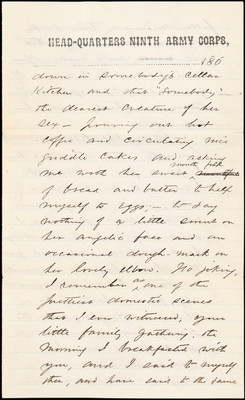 HEAD-QUARTERS NINTH ARMY CORPS,
186
down in somebody's cellar
Kitchen and that "somebody" –
the dearest creature of her
sex – pouring out hot
coffee and circulating nice
griddle cakes and asking
me with her sweet mouth full
of bread and butter to help
myself to eggs, – to say
nothing of a little smut on
her angelic face and an
occasional dough-mark on
her lovely elbow. No joking,
I remember as one of the
prettiest domestic scenes
that I ever witnessed, your
little family gathering, the
morning I breakfasted with
you, and I said to myself
then, and have said to the same